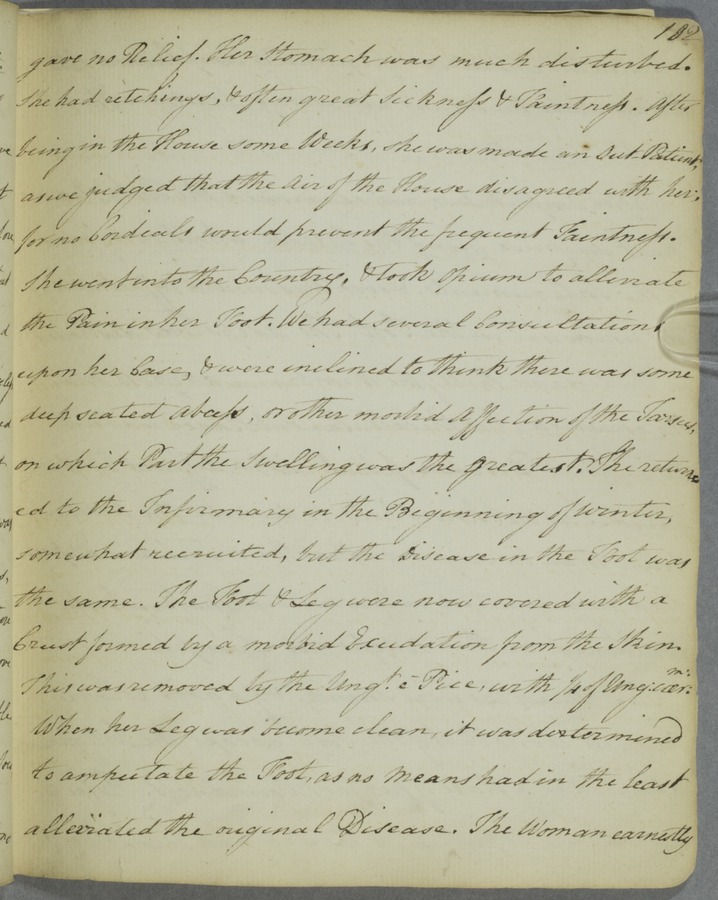 182
gave no Relief. Her Stomach was much disturbed.
She had retchings, & often great Sickness & Faintness. After
being in the House some Weeks, she was made an Out Patient,
as we judged that the Air of the House disagreed with her;
for no Cordials would prevent the frequent Faintness.
She went into the Country, & took Opium to alleviate
the Pain in her Foot. We had several Consultations
upon her Case, & were inclined to think there was some
deep seated abcess, or other morbid Affection of the Tarsus,
on which Part the Swelling was the greatest. She return
ed to the Infirmary in the Beginning of Winter,
somewhat recruited, but the Disease in the Foot was
the same. The Foot & Leg were now covered with a
Crust formed by a morbid Exudation from the Skin.
This was removed by the Ungt. e Pice, with of Ung: cær: m:
When her Leg was become clean, it was determined
to amputate the Foot, as no Means had in the least
alleviated the original Disease. The Woman earnestly